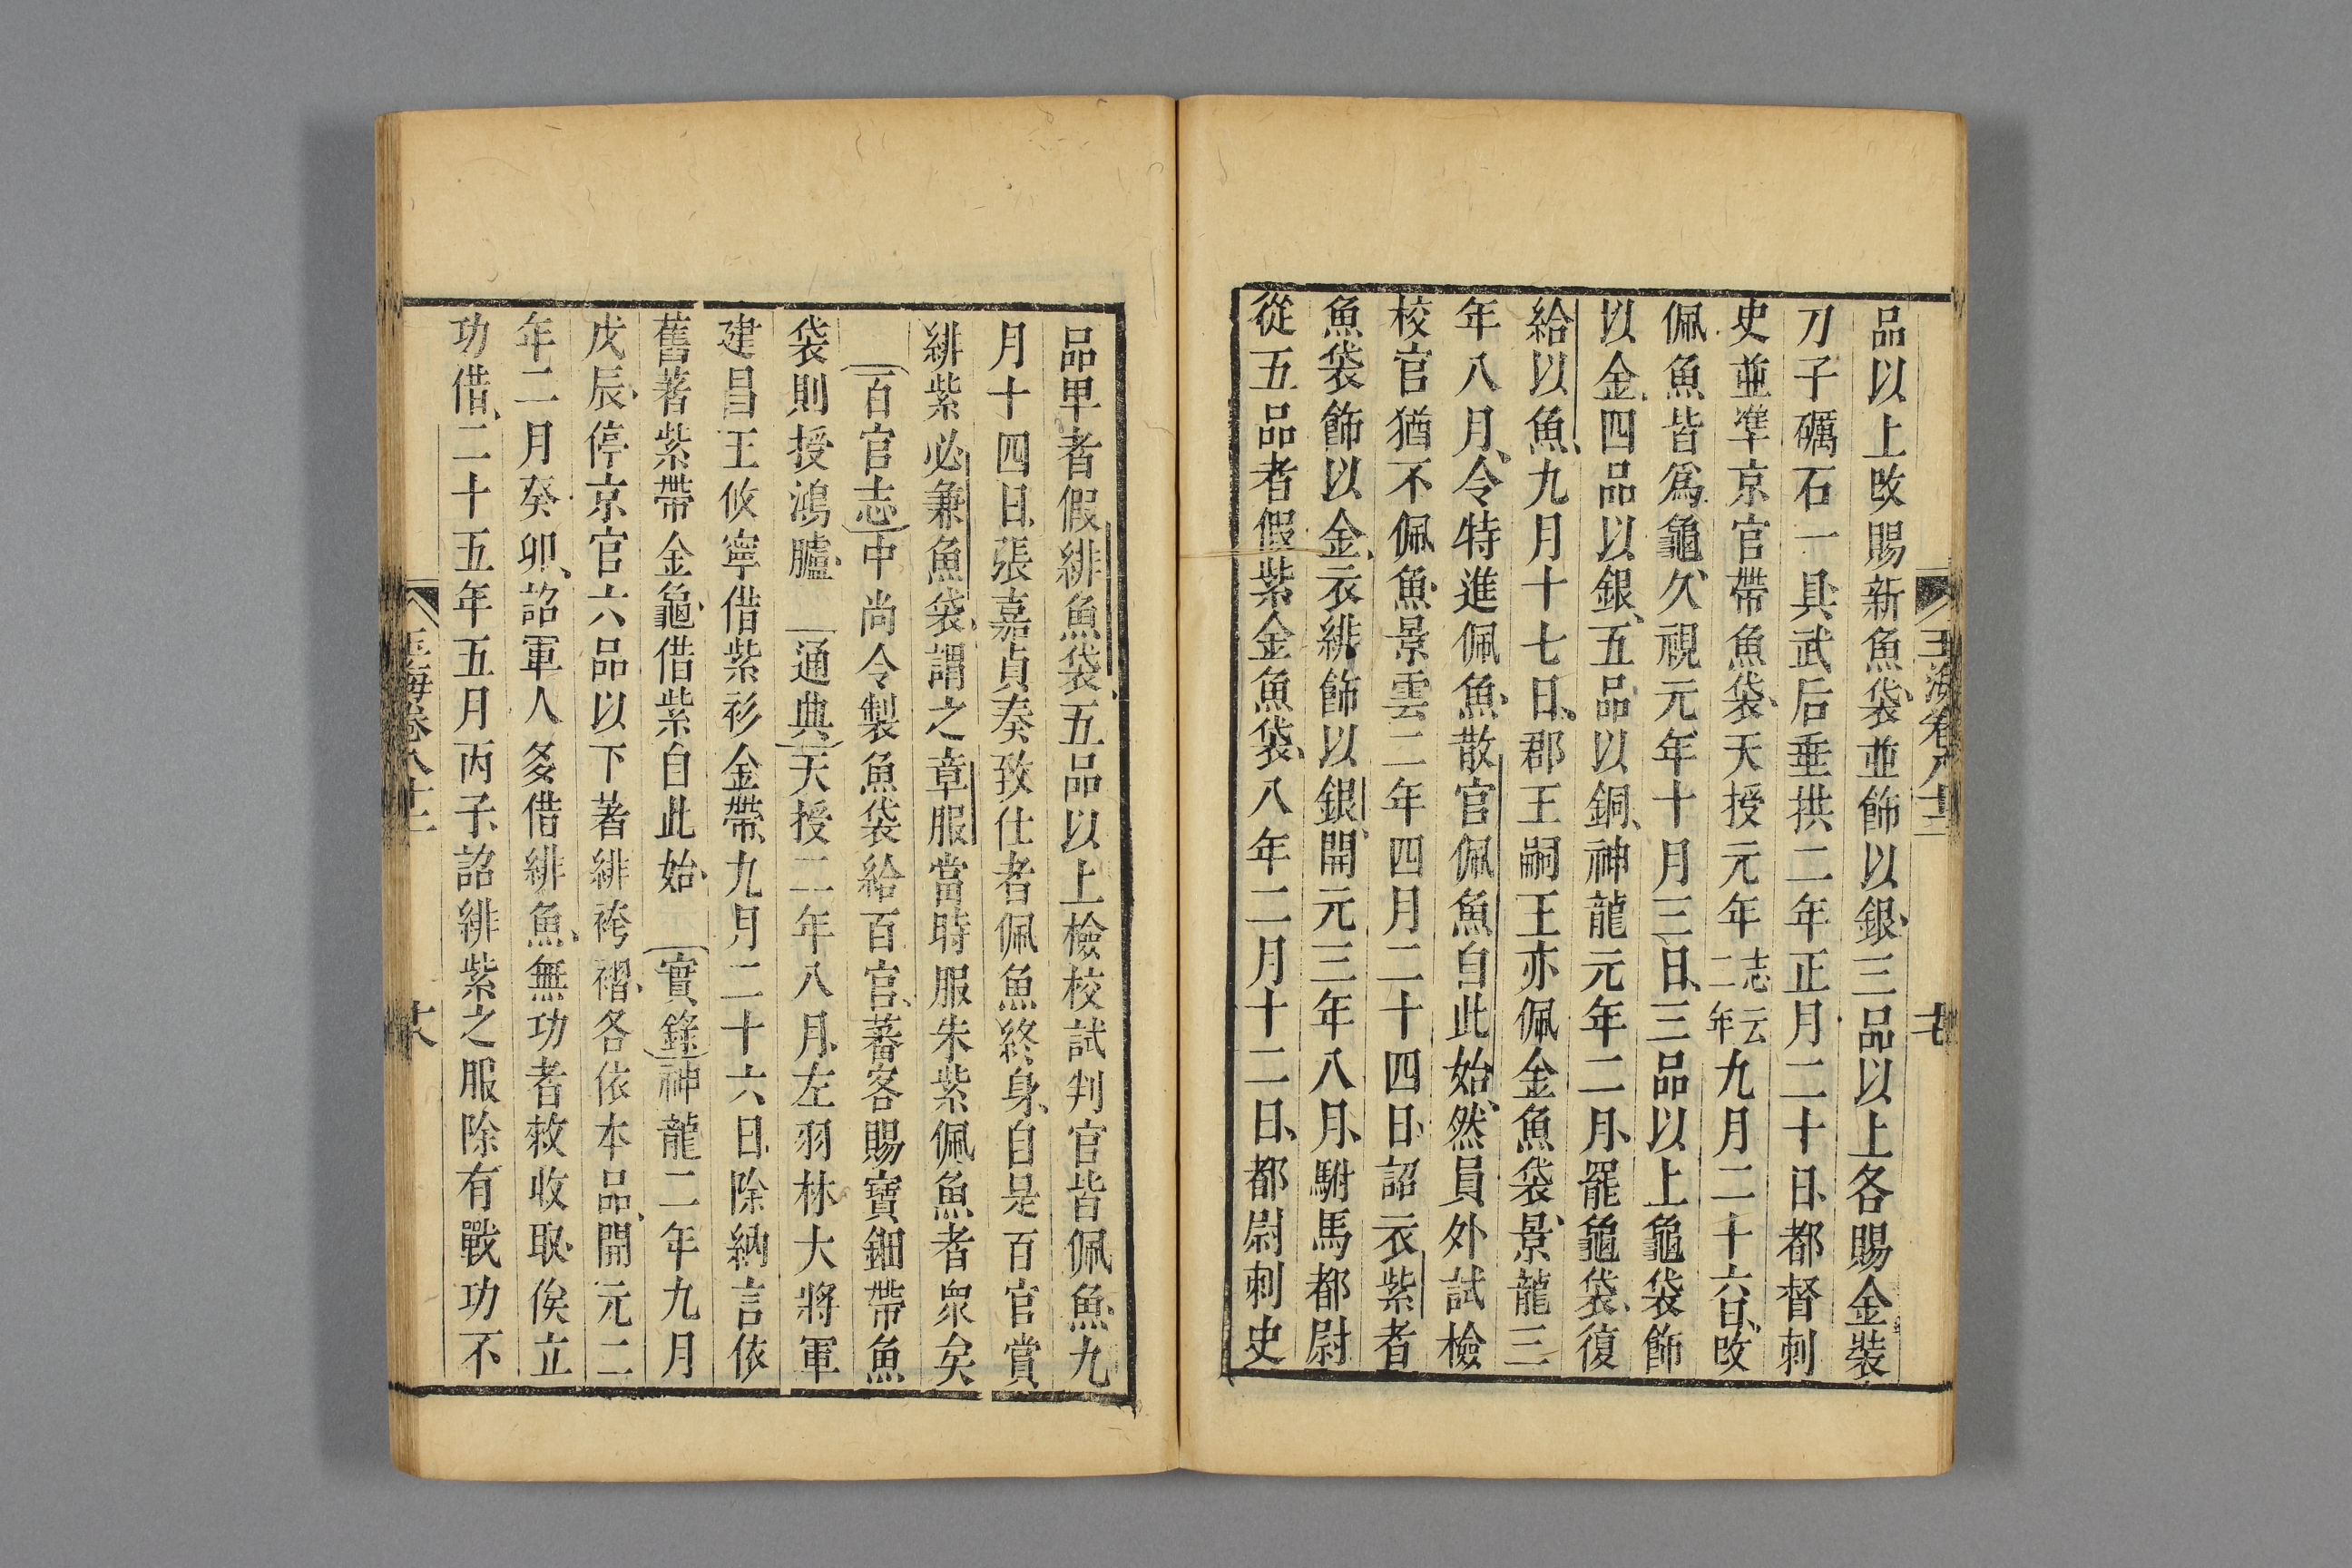 玉海卷八十三
品以上改賜新魚袋並飾以銀三品以上各賜金裝
刀子礪石一具武后垂拱二年正月二十日都督刺
史並準京官帶魚袋天授元年志云二年九月二十六日改
佩魚皆爲龜久視元年十月三日三品以上龜袋飾
以金四品以銀五品以銅神龍元年二月罷龜袋復
給以魚九月十七日郡王嗣王亦佩金魚袋景龍三
年八月令特進佩魚散官佩魚自此始然員外試檢
校官猶不佩魚景雲二年四月二十四日詔衣紫者
魚袋飾以金衣緋飾以銀開元三年八月駙馬都尉
從五品者假紫金魚袋八年二月十二日都尉刺史
品卑者假緋魚袋五品以上檢校試判官皆佩魚九
月十四日張嘉貞奏致仕者佩魚終身自是百官賞
緋紫必兼魚袋謂之章服當時服朱紫佩魚者衆矣
百官志中尚令製魚袋給百官蕃客賜寶鈿帶魚
袋則授鴻臚 通典天授二年八月左羽林大將軍
建昌王攸寧借紫衫金帶九月二十六日除納言依
舊著紫帶金龜借紫自此始 實錄神龍二年九月
戊辰停京官六品以下著緋袴褶各依本品開元二
年二月癸卯詔軍人多借緋魚無功者敕收取俟立
功借二十五年五月丙子詔緋紫之服除有戰功不